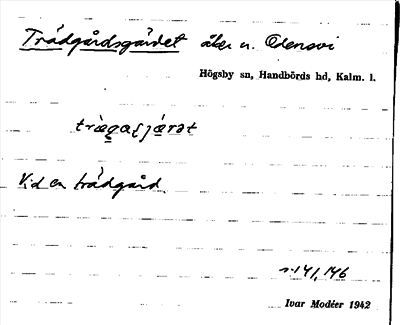 Trädgårdsgärdet åker n. Odensvi
Högsby sn, Handbörds hd, Kalm. l.
Vid en trädgård.
141, 146
Ivar Modéer 1942